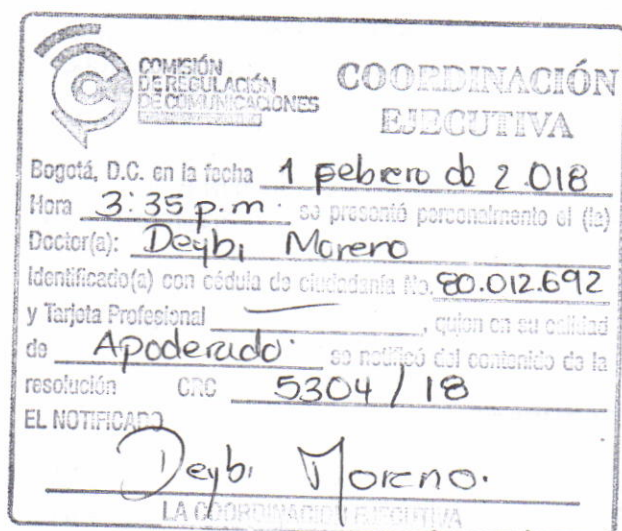 COMISIÓN
DE REGULACIÓN
DE COMUNICACIONES
COORDINACIÓN
EJECUTIVA
Bogotá, D.C. en la fecha 1 Febrero de 2.018
Hora 3:35 p.m. se presentó personalmente el (la)
Doctor(a): Deybi Moreno
Identificado(a) con cédula de ciudadanía No. 80.012.692
y Tarjeta Profesional ______, quien en su calidad
de Apoderado. se notificó del contenido de la
resolución CRC 5304 / 18
EL NOTIFICADO
Deybi Moreno.
LA COORDINACIÓN EJECUTIVA